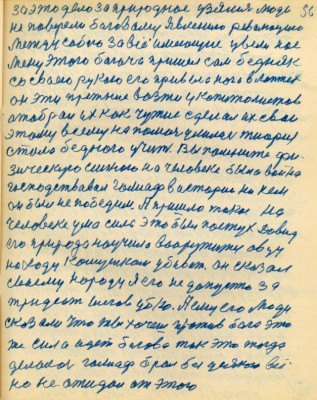 за это дело за природное узяния люди 56
не поверили боговому явлению революцию
Между собою за все имеющие увели нас
Мену этого богача пришел сам бедняк
со своею рукою его привело нога в лаптях
он эти прежние вожжи у капитолистов
отобрал их как чужие сделал их свои
этому всему на помощь учился творил
стало бедного учит. Вы помните фи
зическую сильную на человеке была война
господствовал голиаф в истории но кем
он был не победим. А пришло такое на
человеке ума сила это был пастух Довид
его природа научила вооружити овцу
на ходу Камушком убивал. он сказал
своему народу я его не допустю за
тридцать шагов убью. А ему его Люди
сказали что ты хочешь против бого это
же сила идет богова так это тогда
делалось голиаф брал без действов все
но не отидал от этого